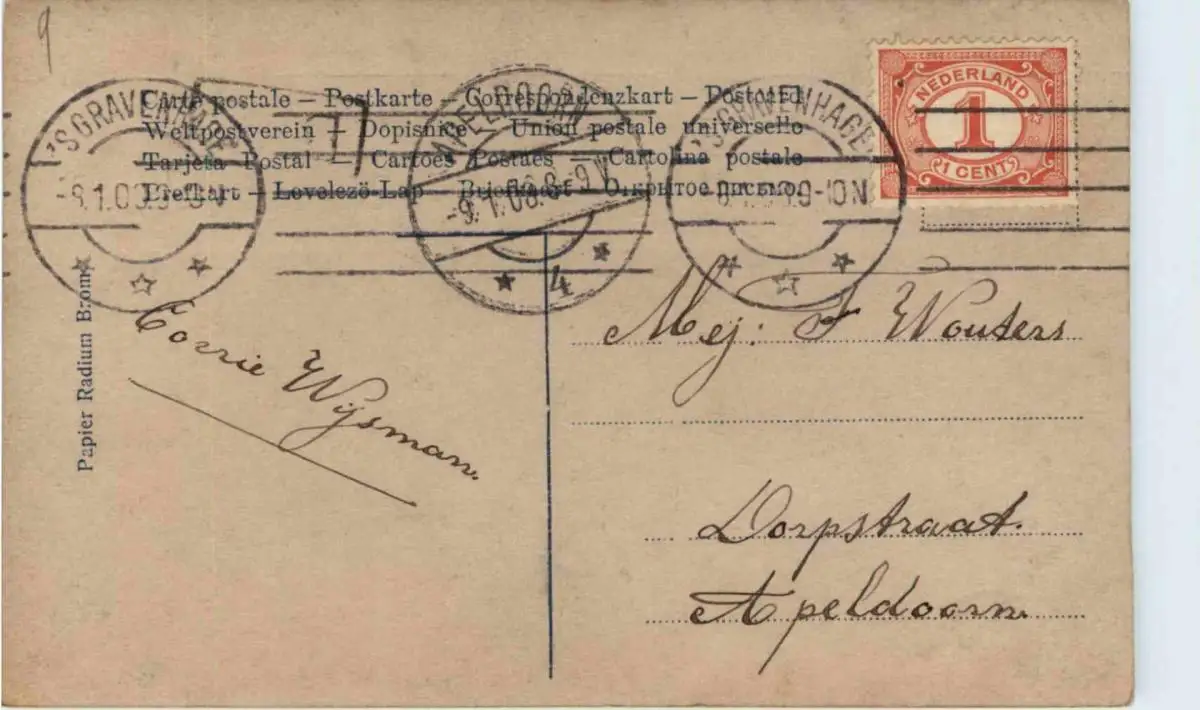 9
Carte postale – Postkarte – Correspondenzkart –
Weltpostverein – Dopisnice – Union postale universelle
Tarjeta Postal – Cartoes Postaes – Cartolina postale
Brefkart – Levelezö-Lap – Briefkaart – Открытое письмо.
'S GRAVENHAGE
APELDOORN
-9.1.08.8-9 V.
4
'S GRAVENHAGE
NEDERLAND
1
1 CENT
Papier Radium Brom
Corrie Wijsman.
Mej: F Wouters
Dorpstraat.
Apeldoorn.